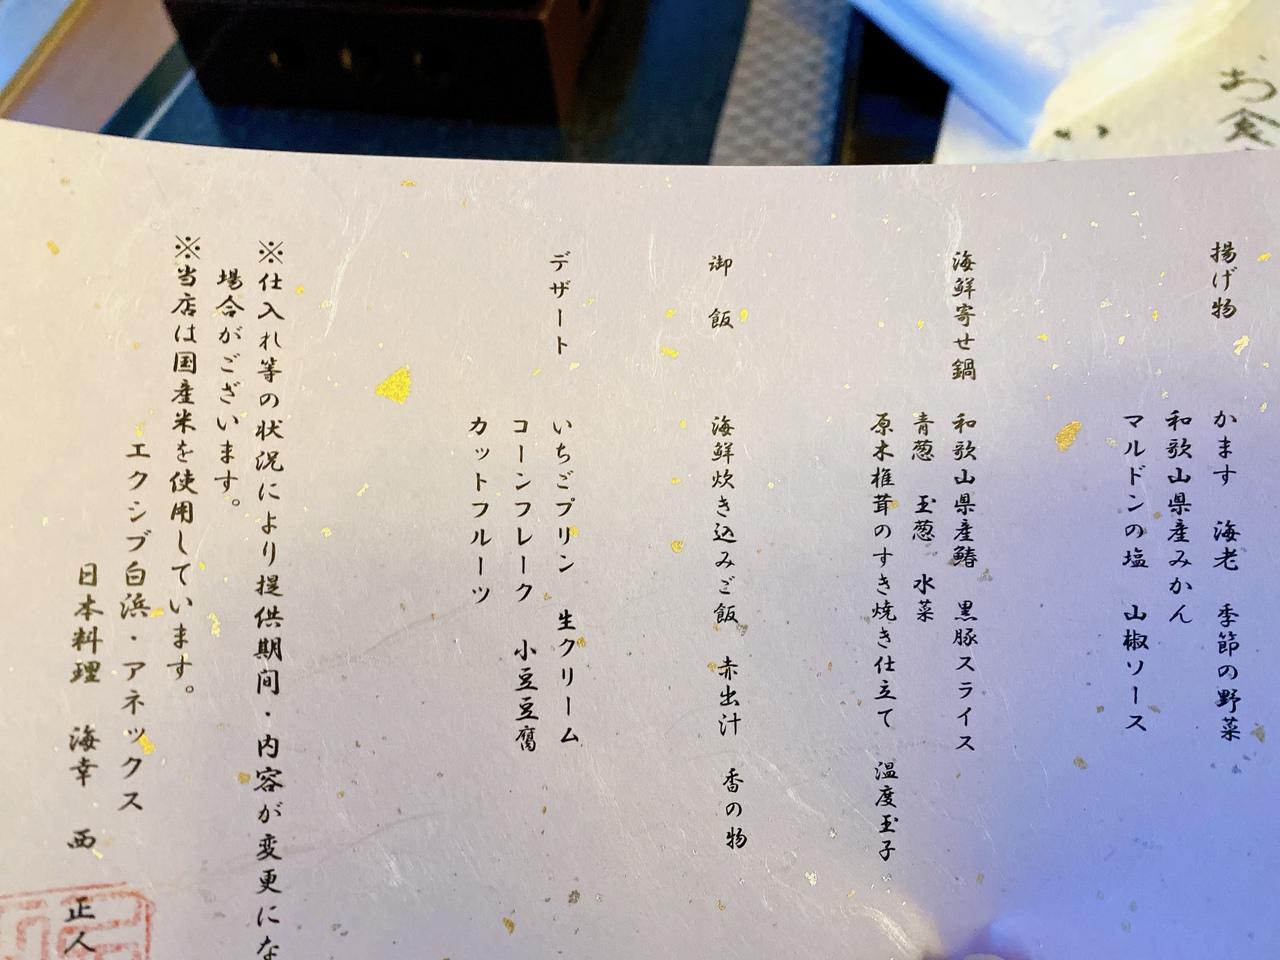 お食
い
揚げ物
かます 海老 季節の野菜
和歌山県産みかん
マルドンの塩 山椒ソース
海鮮寄せ鍋
和歌山県産鰆 黒豚スライス
青葱 玉葱 水菜
原木椎茸のすき焼き仕立て 温度玉子
御飯
海鮮炊き込みご飯 赤出汁 香の物
デザート
いちごプリン 生クリーム
コーンフレーク 小豆豆腐
カットフルーツ
※仕入れ等の状況により提供期間・内容が変更にな
場合がございます。
※当店は国産米を使用しています。
エクシブ白浜・アネックス
日本料理 海幸 西 正人